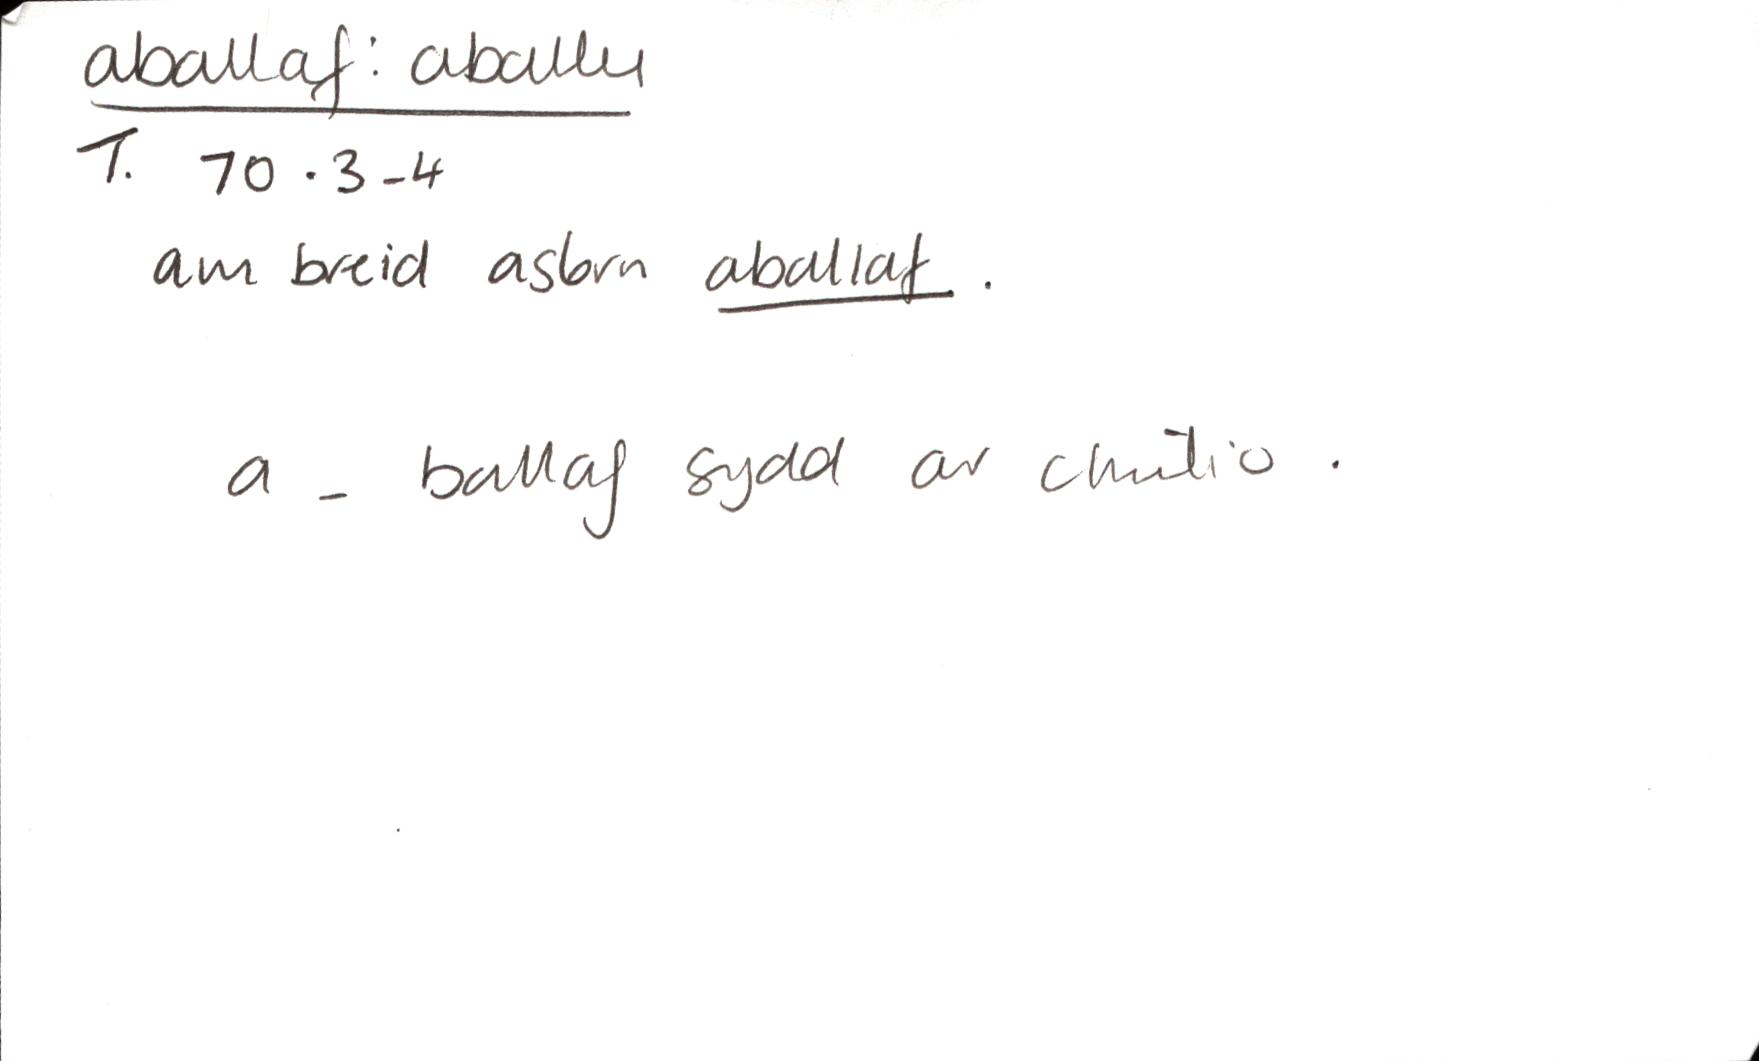 aballaf: aballu
T. 70.3-4
am breid asbrn aballaf.
a - ballaf sydd ar